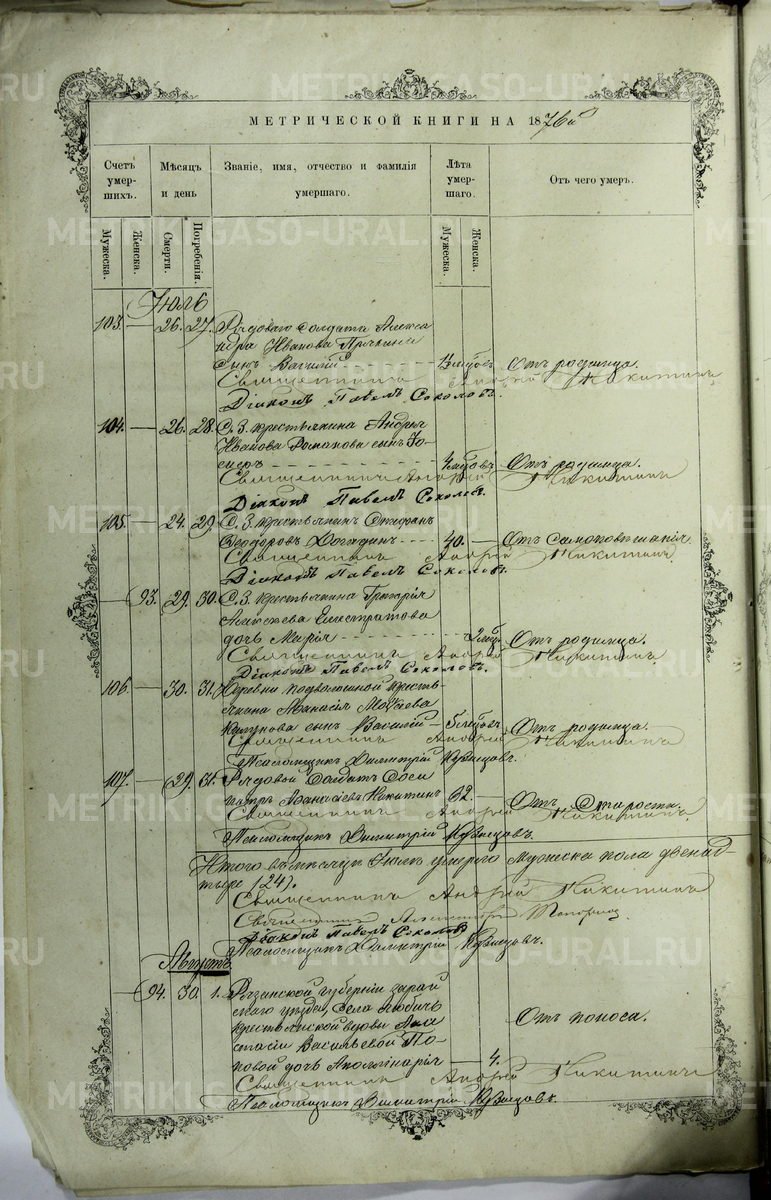 МЕТРИЧЕСКОЙ КНИГИ НА 1876й
Счетъ умерших.
Мѣсяцъ и день
Званіе, имя, отчество и фамилія умершаго.
Лѣта умершаго.
Отъ чего умеръ.
Мужеска.
Женска.
Смерти.
Погребенія.
Мужеска.
Женска.
Іюль
103. — 26. 27. Рядоваго Солдата Алекса
ндра Иванова
сынъ Василій
Отъ родимца.
Священникъ Андрей Никитинъ
Діаконъ Павелъ Соколовъ.
104. — 26. 28. С. З. крестьянина Андрея
Иванова Романова сынъ
Отъ родимца.
Священникъ Андрей Никитинъ
Діаконъ Павелъ Соколовъ.
105. — 24. 29. С. З. крестьянинъ Стефанъ
Ѳеодоровъ 40. — Отъ Самоповѣшанія.
Священникъ Андрей Никитинъ
Діаконъ Павелъ Соколовъ.
— 93. 29. 30. С. З. крестьянина Григорія
Алексѣева Елистратова
дочь Марія
Отъ родимца.
Священникъ Андрей Никитинъ
Діаконъ Павелъ Соколовъ.
106. — 30. 31. Деревни Подволошной кресть-
янина Аѳанасія Моѵсеева
сынъ Василій — Отъ родимца.
Священникъ Андрей Никитинъ
Псаломщикъ Димитрій Кузнецовъ.
107. — 29. 31. Рядовой Солдатъ Соси
патръ Аѳанасіевъ Никитинъ 62. — Отъ Старости.
Священникъ Андрей Никитинъ
Псаломщикъ Димитрій Кузнецовъ.
Итого въ мѣсяцѣ Іюлѣ умерло Мужеска пола двенад
(24).
Священникъ Андрей Никитинъ
Священникъ
Діаконъ Павелъ Соколовъ
Псаломщикъ Димитрій Кузнецовъ.
Августъ
— 94. 30. 1. Рязанской губерніи Зарай
скаго уѣзда, Села Любичь
крестьянской вдовы Ана
стасіи Васильевой По
повой дочь Аполлинарія — 4.
Отъ поноса.
Священникъ Андрей Никитинъ
Псаломщикъ Димитрій Кузнецовъ.
METRIKI.GASO-URAL.RU